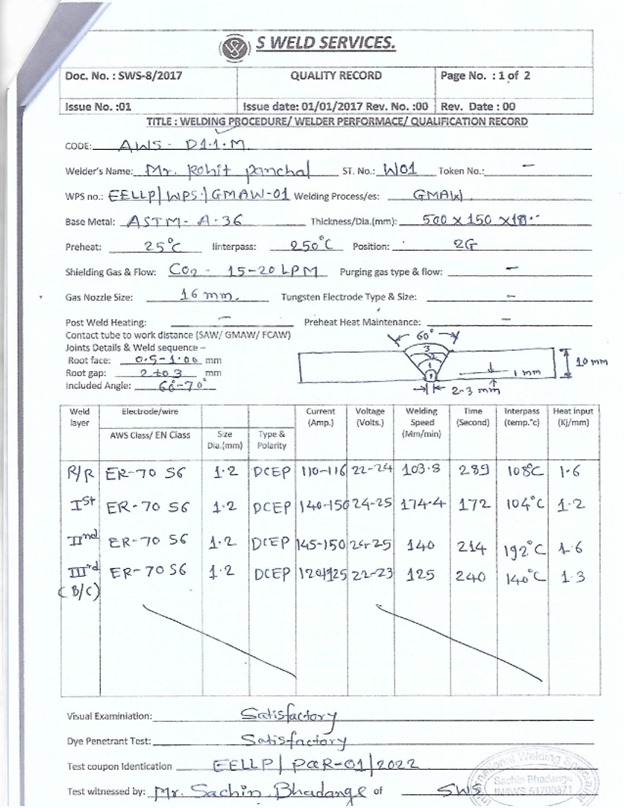 S WELD SERVICES.
Doc. No. : SWS-8/2017 QUALITY RECORD Page No. : 1 of 2
Issue No. :01 Issue date: 01/01/2017 Rev. No. :00 Rev. Date : 00
TITLE : WELDING PROCEDURE/ WELDER PERFORMACE/ QUALIFICATION RECORD
CODE: AWS - D1.1.M
Welder's Name: Mr. Rohit Panchal ST. No.: W01 Token No.: —
WPS no.: EELLP/WPS/GMAW-01 Welding Process/es: GMAW
Base Metal: ASTM-A-36 Thickness/Dia.(mm): 500 x 150 x
Preheat: 25°C Iinterpass: 250°C Position: 2G
Shielding Gas & Flow: CO2 - 15-20 LPM Purging gas type & flow: —
Gas Nozzle Size: 16 mm. Tungsten Electrode Type & Size: —
Post Weld Heating: — Preheat Heat Maintenance: —
Contact tube to work distance (SAW/ GMAW/ FCAW)
Joints Details & Weld sequence –
Root face: 0.5-1.00 mm
Root gap: 2 to 3 mm
Included Angle: 60-70°
60°
3
2
1
10 mm
1 mm
2-3 mm
Weld layer Electrode/wire Current (Amp.) Voltage (Volts.) Welding Speed (Mm/min) Time (Second) Interpass (temp.°c) Heat input (Kj/mm)
AWS Class/ EN Class Size Dia.(mm) Type & Polarity
R/R ER-70 S6 1.2 DCEP 110-116 22-24 103.8 289 108°C 1.6
Ist ER-70 S6 1.2 DCEP 140-150 24-25 174.4 172 104°C 1.2
IInd ER-70 S6 1.2 DCEP 145-150 24-25 140 214 192°C 1.6
IIIrd ER-70 S6 1.2 DCEP 120/125 22-23 125 240 140°C 1.3
(B/C)
Visual Examiniation: Satisfactory
Dye Penetrant Test: Satisfactory
Test coupon Identication EELLP/PQR-01/2022
Test witnessed by: Mr. Sachin Bhadange of SWS
International Welding
Sachin Bhadange